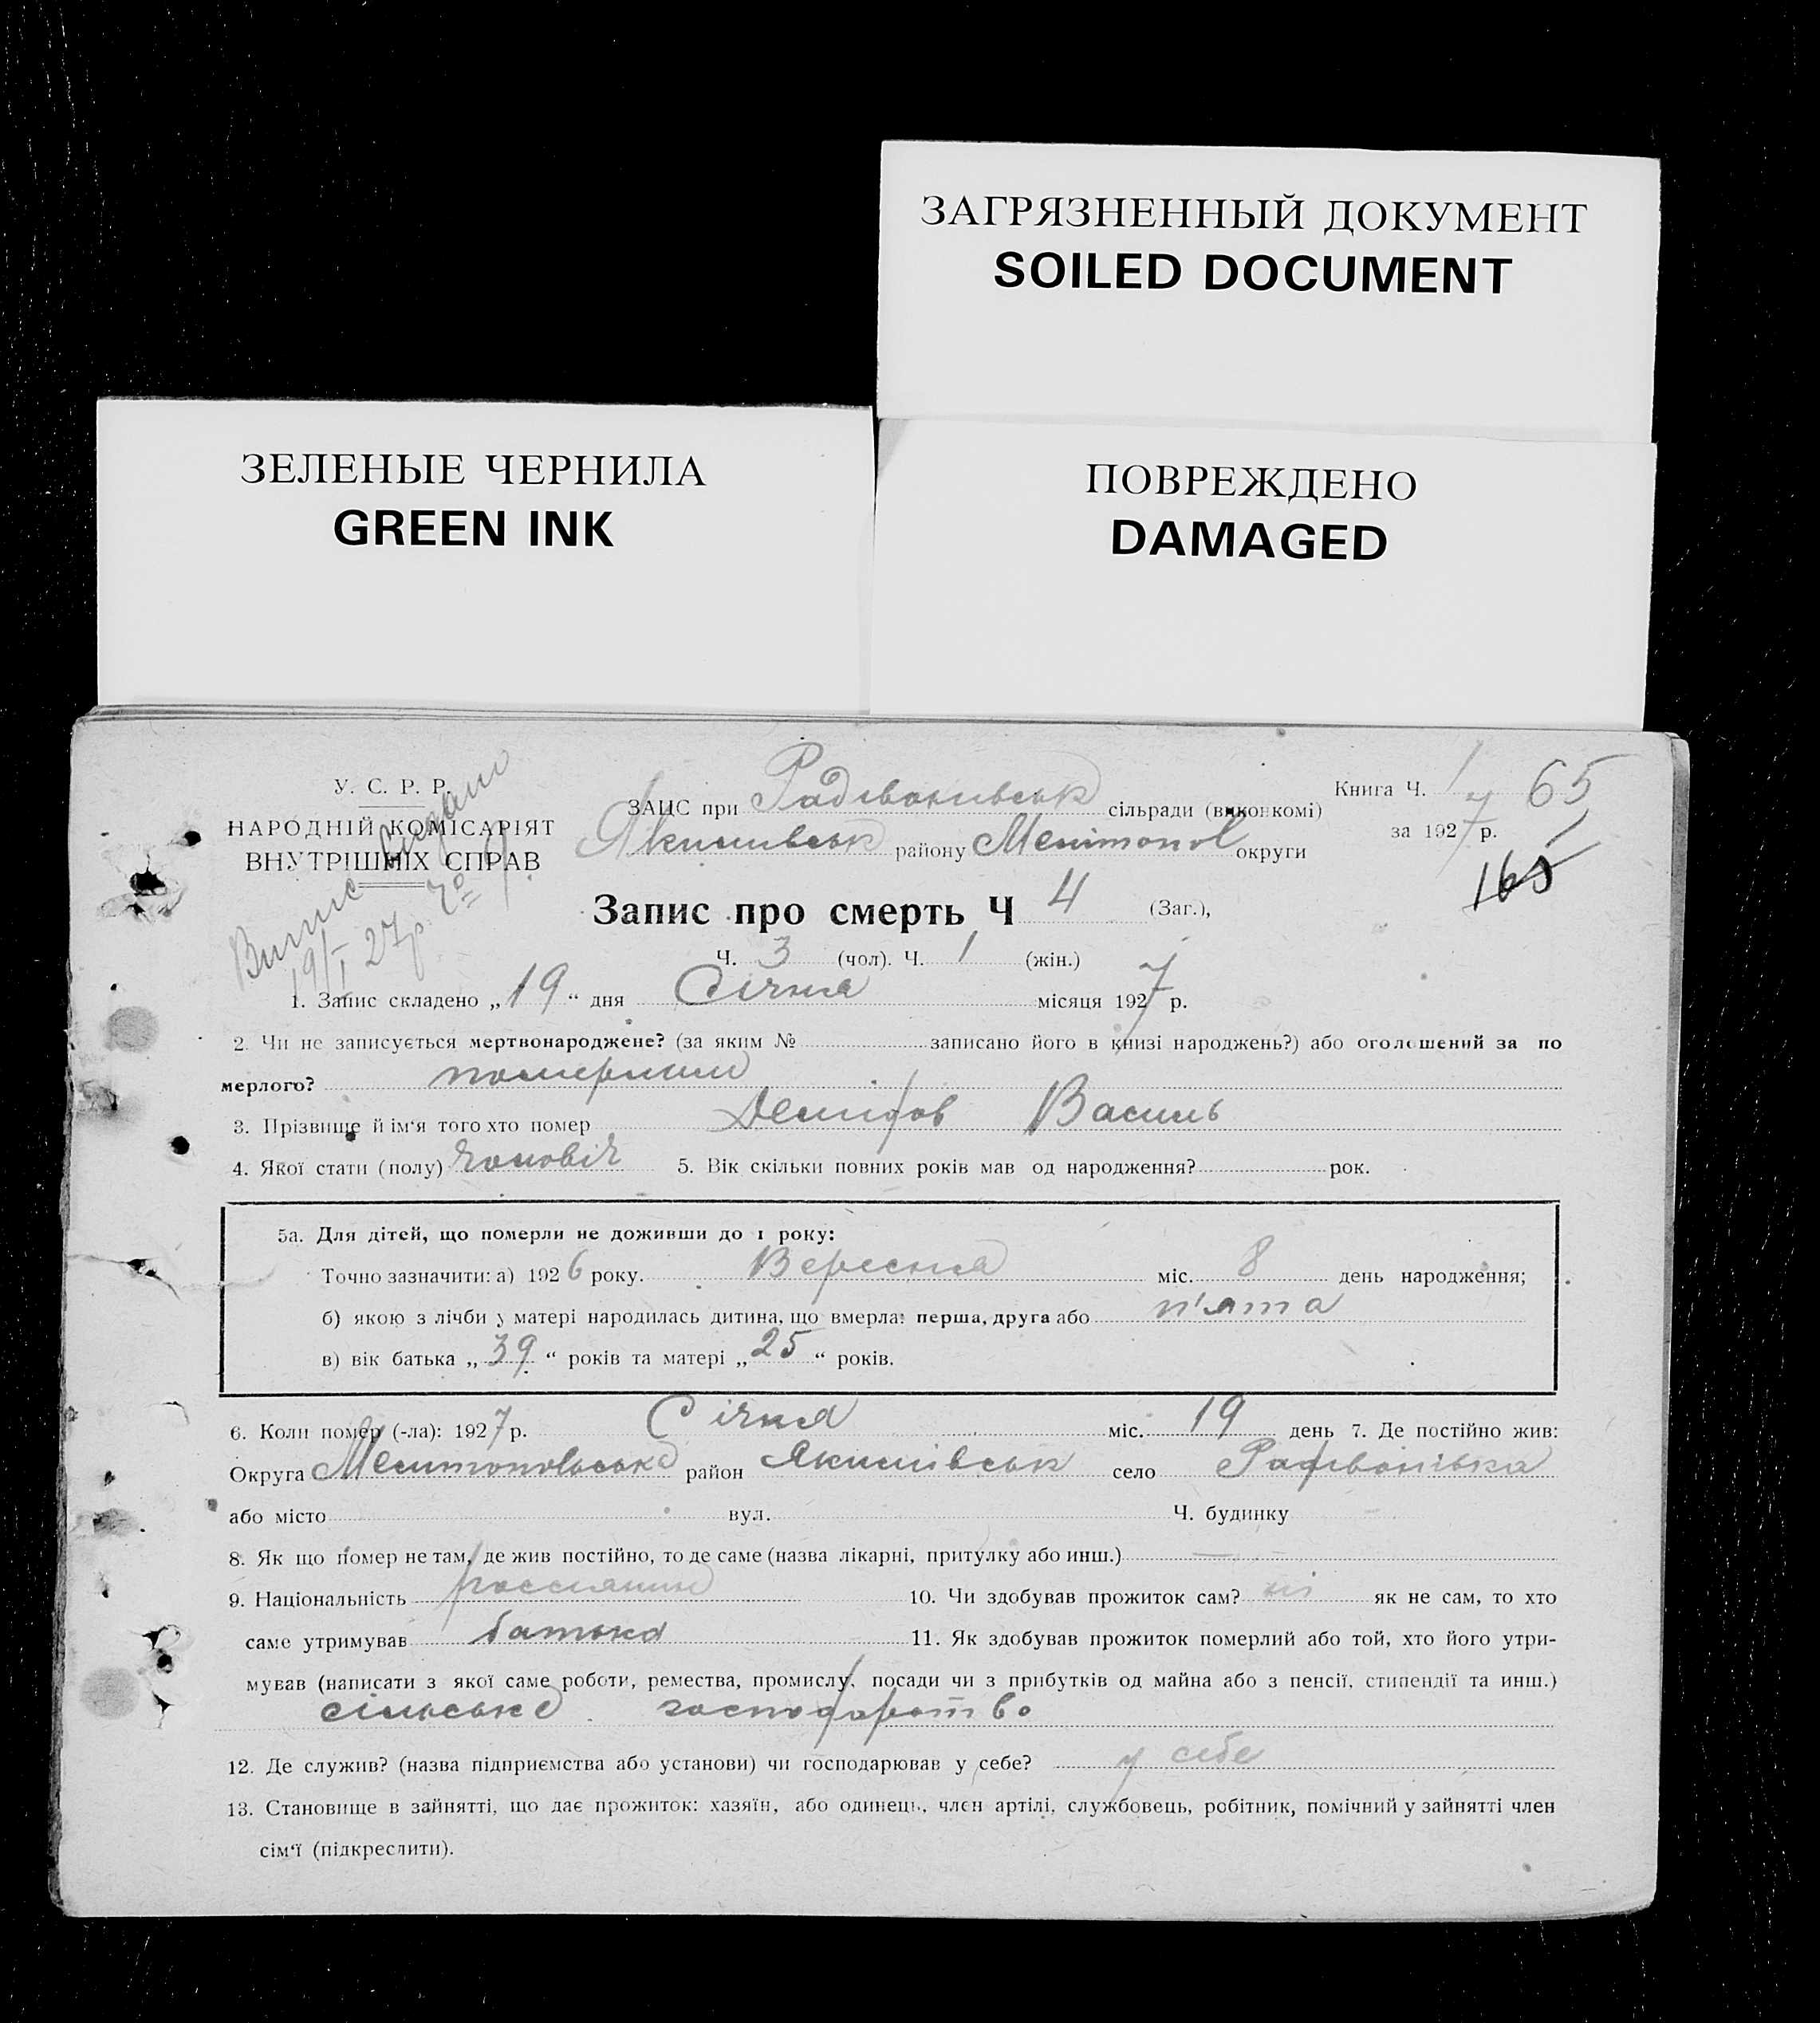 ЗАГРЯЗНЕННЫЙ ДОКУМЕНТ
SOILED DOCUMENT
ЗЕЛЕНЫЕ ЧЕРНИЛА
GREEN INK
ПОВРЕЖДЕНО
DAMAGED
У. С. Р. Р.
НАРОДНІЙ КОМІСАРІЯТ
ВНУТРІШНІХ СПРАВ
Випис видано
19/I 27р.
ЗАЦС при Радівонивськ сільради (виконкомі)
Якимивськ району Мелітопол округи
Книга Ч. 1 65
за 1927 р.
165
Запис про смерть Ч 4 (Заг.),
Ч. 3 (чол). Ч. 1 (жін.)
1. Запис складено „19“ дня Січня місяця 1927 р.
2. Чи не записується мертвонароджене? (за яким № записано його в книзі народжень?) або оголошений за по
мерлого? померший
3. Прізвище й ім‘я того хто помер Демидов Василь
4. Якої стати (полу) чоловіч 5. Вік скільки повних років мав од народження? рок.
5а. Для дітей, що померли не доживши до 1 року:
Точно зазначити: а) 1926 року. Вересня міс. 8 день народження;
б) якою з лічби у матері народилась дитина, що вмерла: перша, друга або п'ята
в) вік батька „39“ років та матері „25“ років.
6. Коли помер (-ла): 1927 р. Січня міс. 19 день 7. Де постійно жив:
Округа Мелитопольська район Якимівськ село Радівонівка
або місто вул. Ч. будинку
8. Як що помер не там, де жив постійно, то де саме (назва лікарні, притулку або инш.) —
9. Національність россиянин 10. Чи здобував прожиток сам? ні як не сам, то хто
саме утримував батько 11. Як здобував прожиток померлий або той, хто його утри-
мував (написати з якої саме роботи, ремества, промислу, посади чи з прибутків од майна або з пенсії, стипендії та инш.)
сільське господарство
12. Де служив? (назва підприємства або установи) чи господарював у себе? у себе
13. Становище в зайнятті, що дає прожиток: хазяїн, або одинець, член артілі, службовець, робітник, помічний у зайнятті член
сім‘ї (підкреслити).